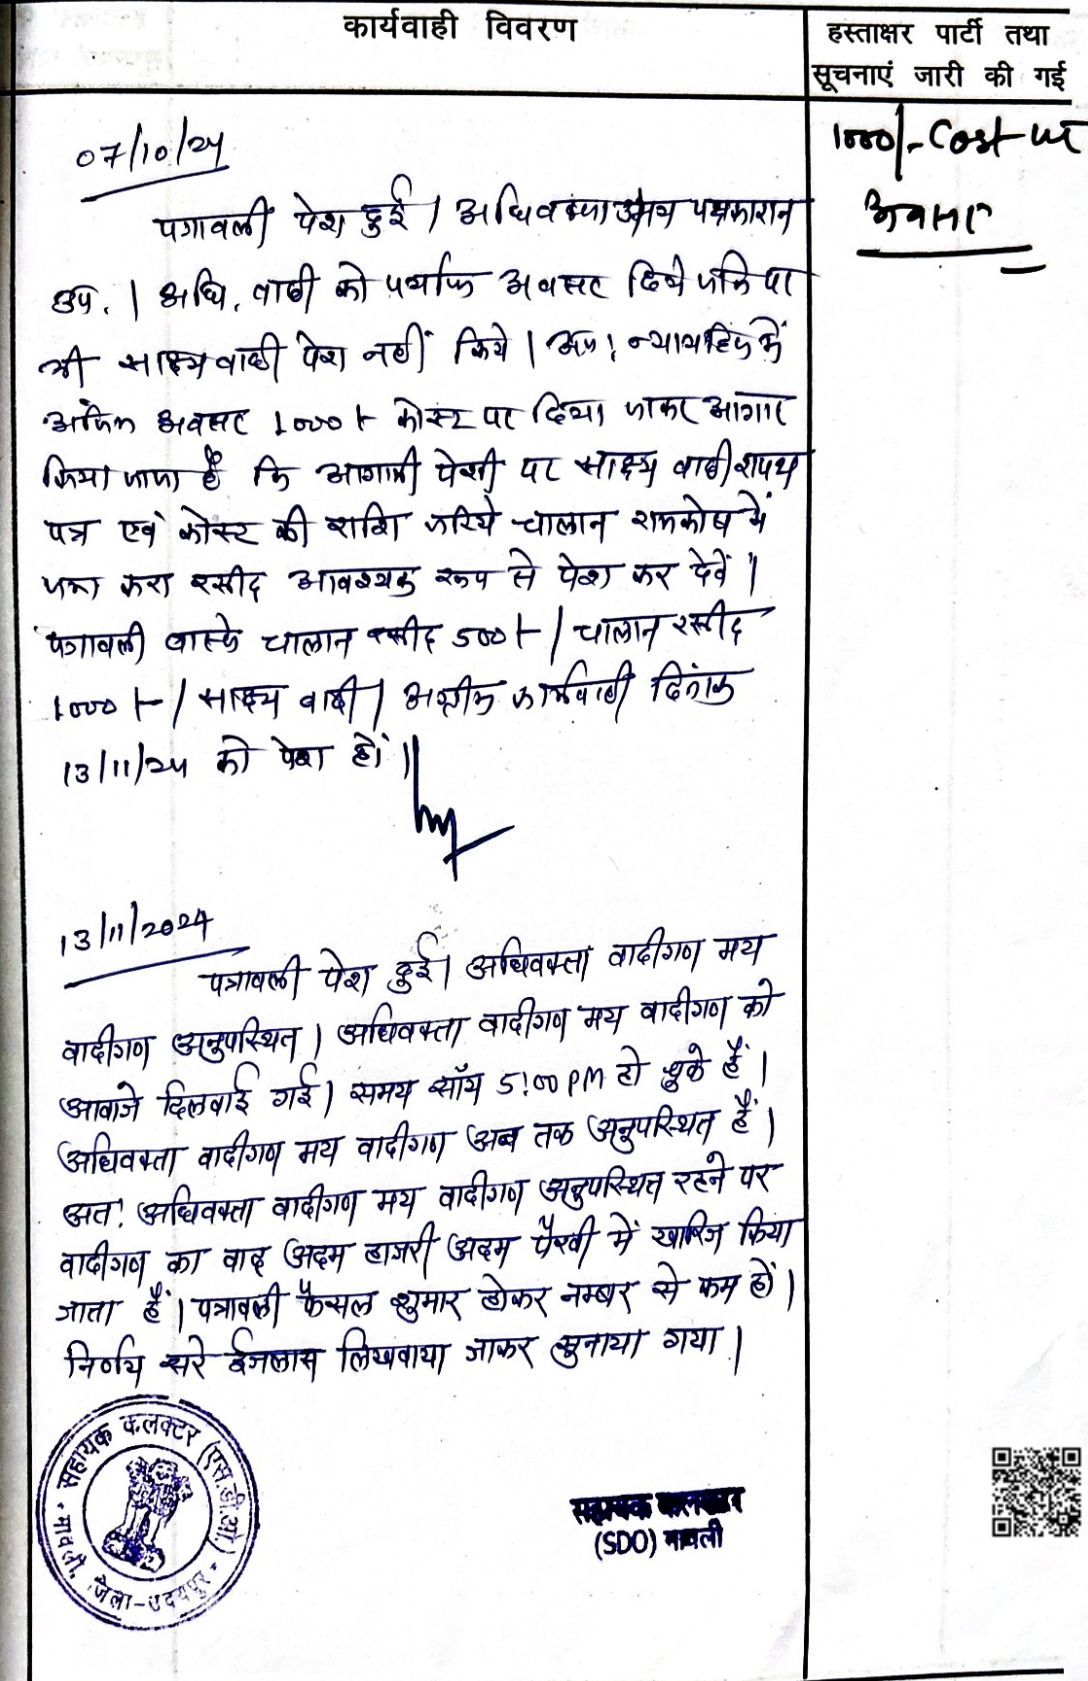 कार्यवाही विवरण
हस्ताक्षर पार्टी तथा
सूचनाएं जारी की गई
1000/- Cost पर
अवसर
07/10/24
पत्रावली पेश हुई। अधिवक्ता उभय पक्षकारान
उप.। अधि. वादी को पर्याप्त अवसर दिये जाने पर
भी साक्ष्य वादी पेश नहीं किये। अतः न्यायहित में
अंतिम अवसर 1000/- कोस्ट पर दिया जाकर आगाह
किया जाता है कि आगामी पेशी पर साक्ष्य वादी शपथ
पत्र एवं कोस्ट की राशि जरिये चालान राजकोष में
जमा करा रसीद आवश्यक रूप से पेश कर देवें।
पत्रावली वास्ते चालान रसीद 500/- / चालान रसीद
1000/- / साक्ष्य वादी / अग्रीम कार्यवाही दिनांक
13/11/24 को पेश हों।
13/11/2024
पत्रावली पेश हुई। अधिवक्ता वादीगण मय
वादीगण अनुपस्थित। अधिवक्ता वादीगण मय वादीगण को
आवाजे दिलवाई गई। समय सॉय 5:00 PM हो चुके हैं।
अधिवक्ता वादीगण मय वादीगण अब तक अनुपस्थित हैं।
अतः अधिवक्ता वादीगण मय वादीगण अनुपस्थित रहने पर
वादीगण का वाद अदम हाजरी अदम पैरवी में खारिज किया
जाता हैं। पत्रावली फैसल शुमार होकर नम्बर से कम हों।
निर्णय सरे ईजलास लिखवाया जाकर सुनाया गया।
सहायक कलक्टर (एस.डी.ओ.)
मावली, जिला-उदयपुर
सहायक कलक्टर
(SDO) मावली